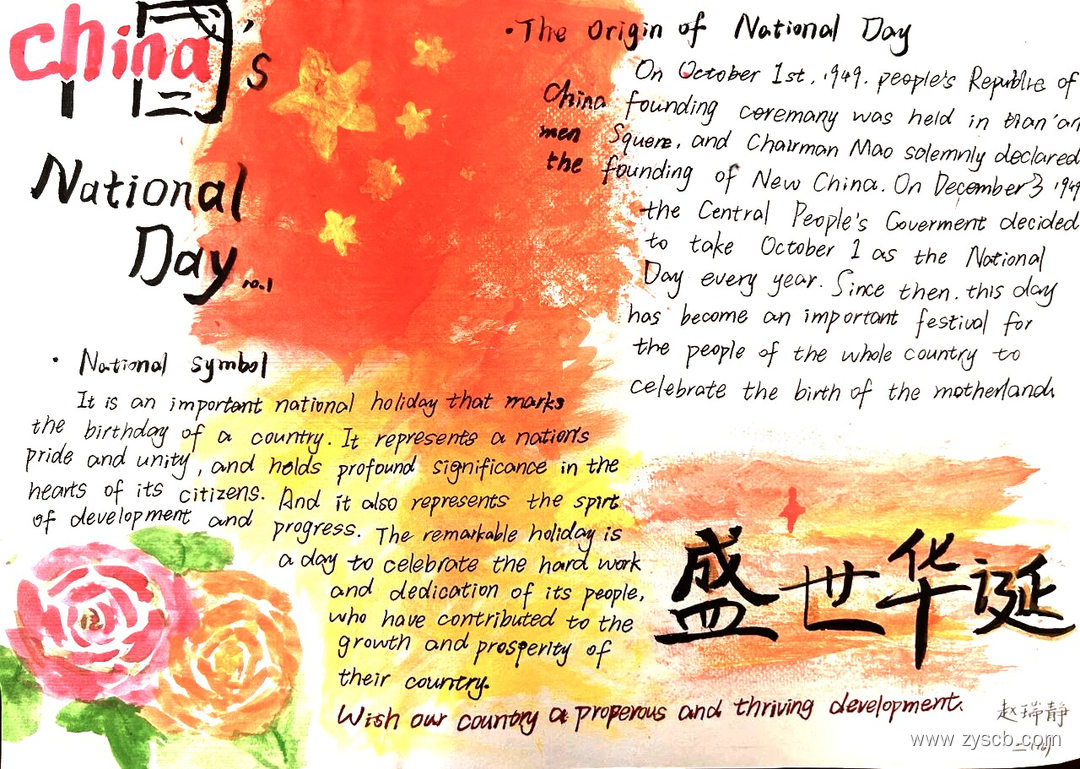 china's
中国
National
Day no.1
·The Origin of National Day
On October 1st, 1949. people's Republic of
China founding ceremany was held in tian'an
men Square, and Chairman Mao solemnly declared
the founding of New China. On December 3 1949
the Central People's Goverment decided
to take October 1 as the National
Day every year. Since then. this day
has become an important festival for
the people of the whole country to
celebrate the birth of the motherland.
· National symbol
It is an important national holiday that marks
the birthday of a country. It represents a nation's
pride and unity, and holds profound significance in the
hearts of its citizens. And it also represents the spirt
of development and progress. The remarkable holiday is
a day to celebrate the hard work
and dedication of its people,
who have contributed to the
growth and prosperity of
their country.
Wish our country a properous and thriving development.
盛世华诞
赵瑞静
www.zyscb.com